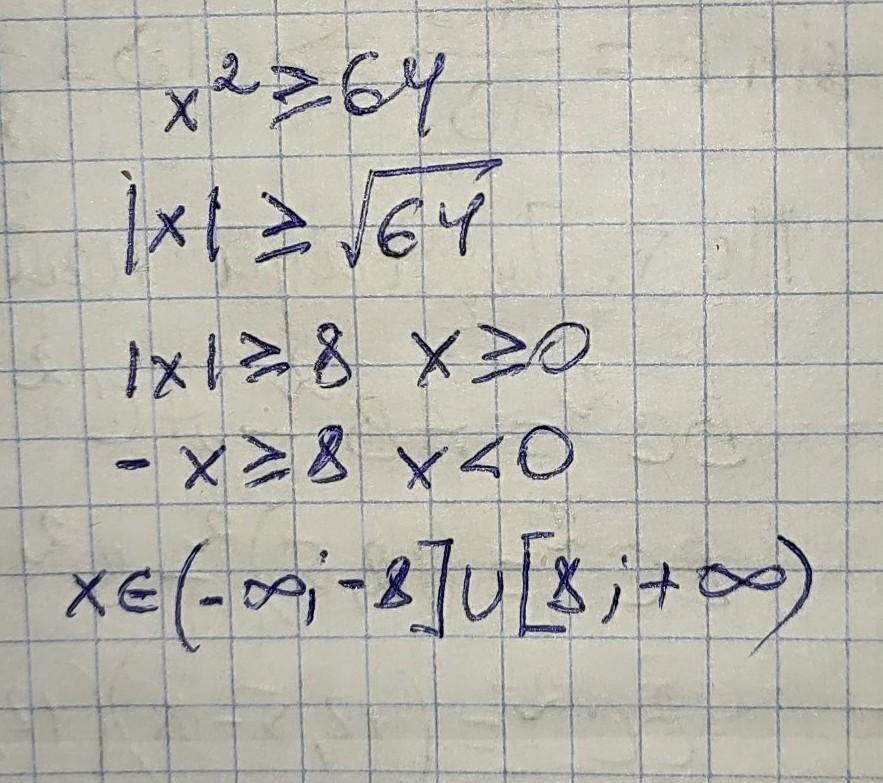 x² ≥ 64
|x| ≥ √64
|x| ≥ 8 x ≥ 0
- x ≥ 8 x < 0
x ∈ (-∞; -8] ∪ [8; +∞)